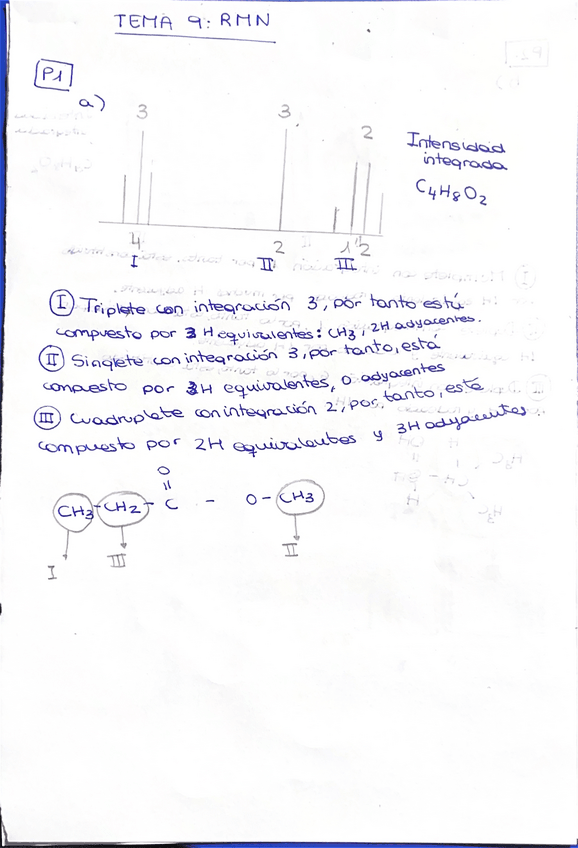 TEMA 9: RMN
P1
a)
3 3 2
Intensidad
integrada
C4H8O2
4 2 1 2
I II III
I Triplete con integración 3, por tanto está
compuesto por 3 H equivalentes: CH3, 2H adyacentes.
II Singlete con integración 3, por tanto, está
compuesto por 3H equivalentes, 0 adyacentes
III Cuadruplete con integración 2, por tanto, está
compuesto por 2H equivalentes y 3H adyacentes
O
CH3 - CH2 - C - O - CH3
I III II